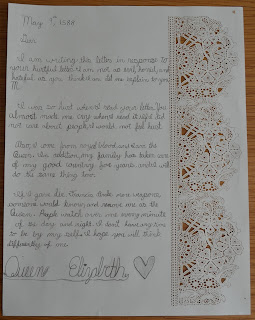 May 9, 1588
Dear
I am writing this letter in response to
your hurtful letter. I am not as cruel, bored, and
hateful as you think I am let me explain to you
I was so hurt when I read your letter. You
almost made me cry when I read it. If I did
not care about people, I would not feel hurt.
Also, I am from royal blood and I am the
Queen. In addition, my family has taken care
of my good country for years and I will
do the same thing too.
If I gave Sir Francis Drake more
someone would know, and remove me as the
Queen. People watch over me every minute
of the day and night. I don't have any time
to be by my self. I hope you will think
differently of me.
Queene Elizabeth